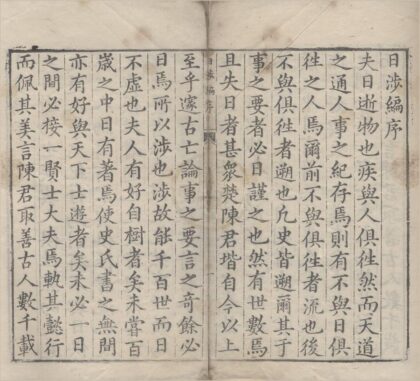 日涉編序
夫日逝物也疾與人俱徃然而天道
之通人事之紀存焉則有不與日俱
徃之人焉爾前不與俱徃者流也後
不與俱徃者遡也凢史皆遡爾其于
事之要者必日謹之也然有世數焉
且失日者甚衆楚陳君堦自今以上
日涉編序
至乎邃古亡論事之要言之奇餘必
日焉所以涉也涉故能千百世而日
不虛也夫人有好自樹者矣未嘗百
嵗之中日有著焉使史氏書之無間
亦有好與天下士遊者矣未必一日
之間必接一賢士大夫焉執其懿行
而佩其美言陳君取善古人數千載